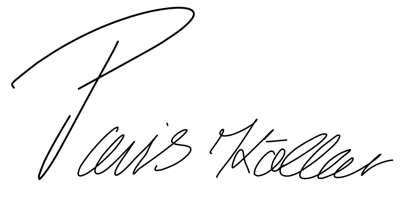 Paris Kōllar